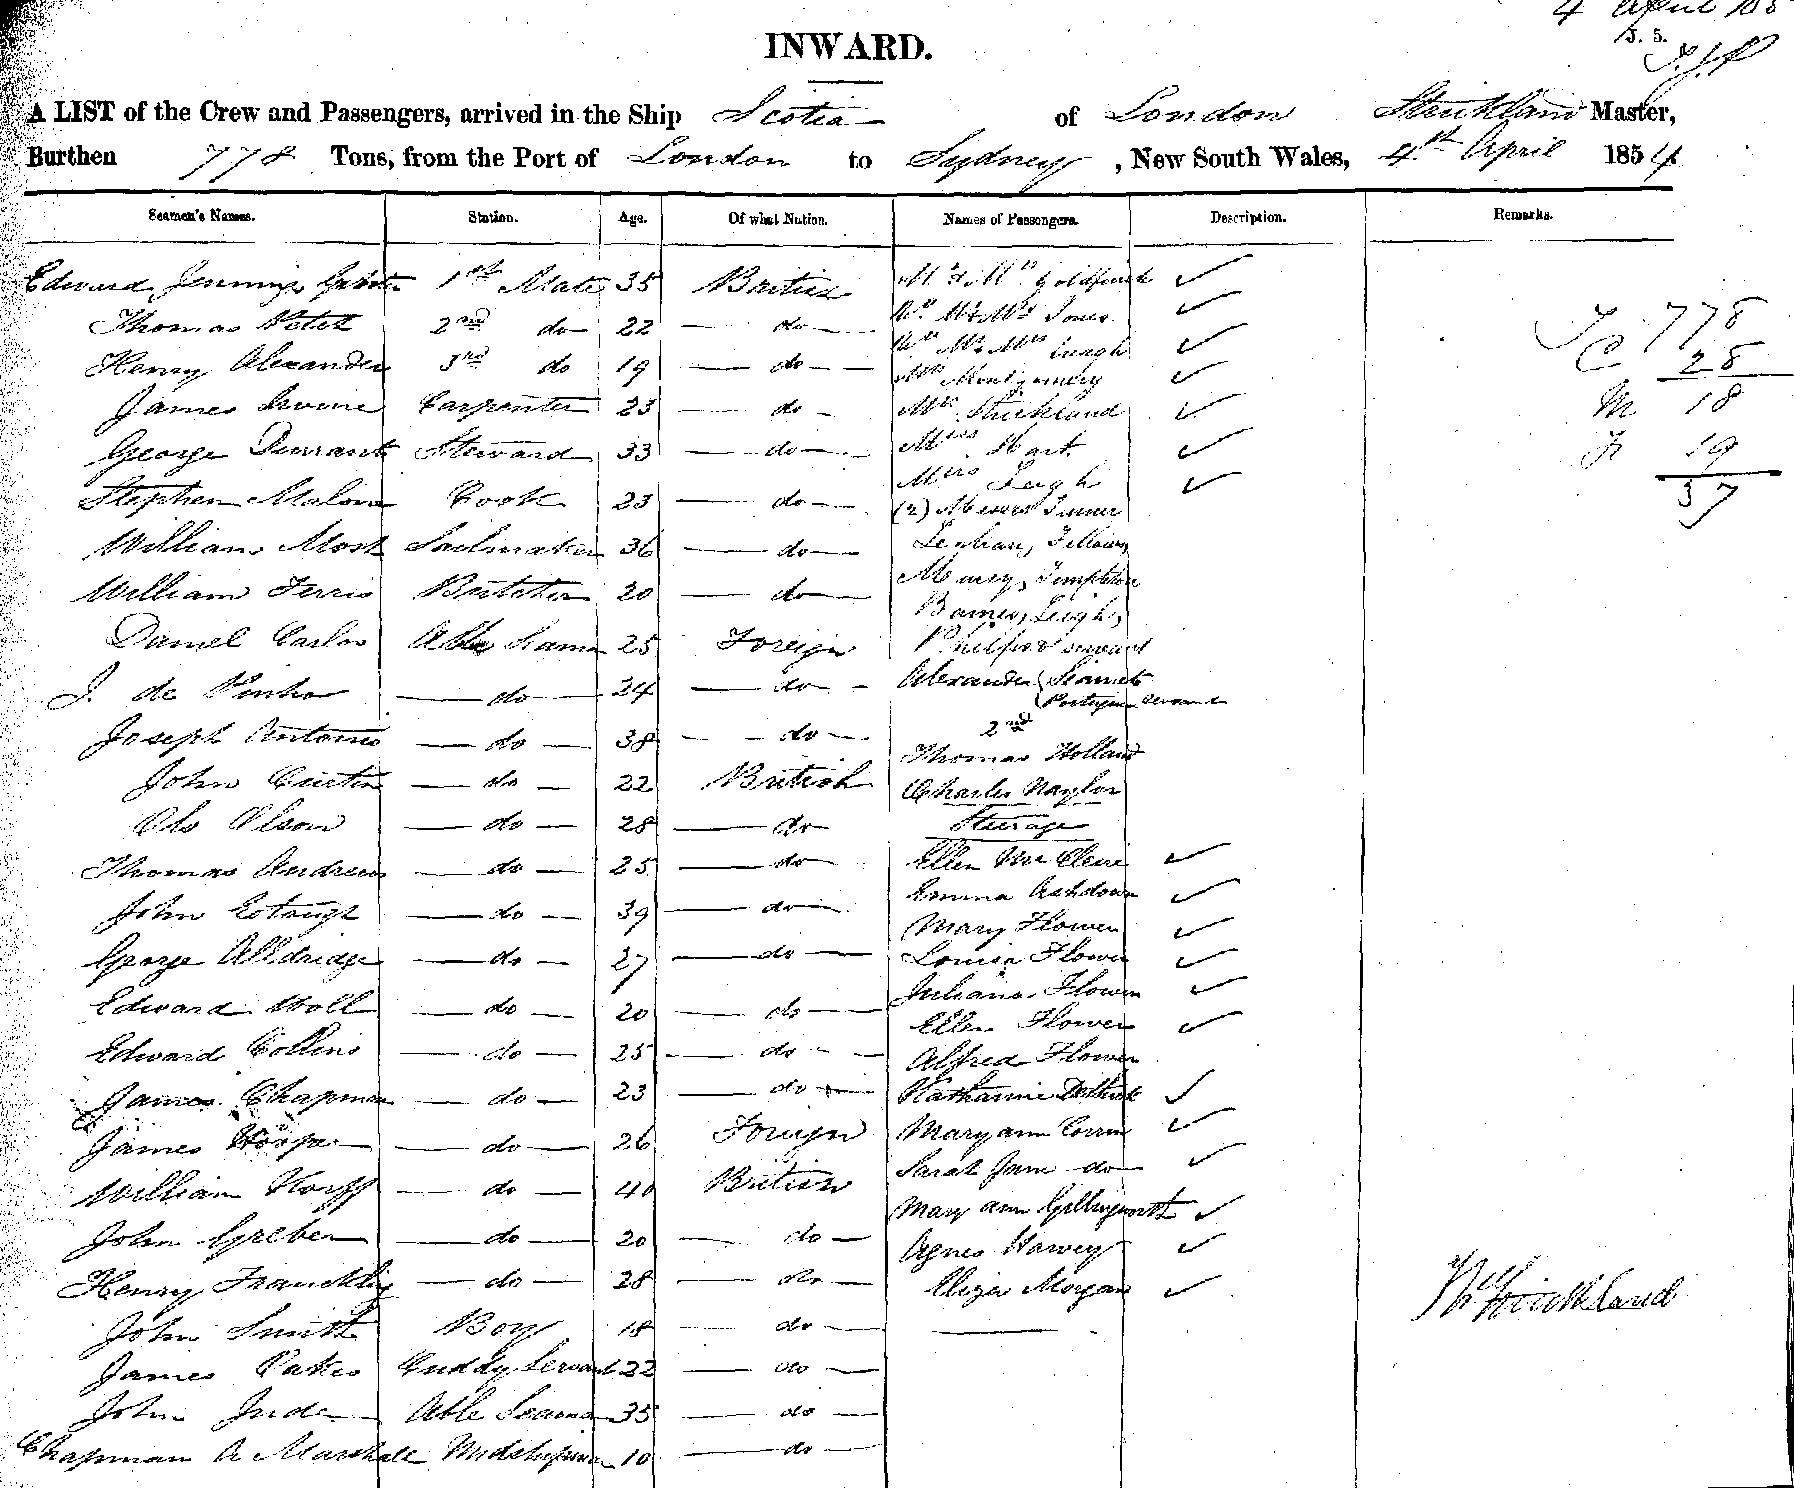 4 April 185
INWARD.
A LIST of the Crew and Passengers, arrived in the Ship Scotia of London Strickland Master,
Burthen 778 Tons, from the Port of London to Sydney, New South Wales, 4th April 1854
Seamen's Names. Station. Age. Of what Nation. Names of Passengers. Description. Remarks.
Edward Jennings 1st Mate 35 British Mr & Mrs Goldfinch ✓
Thomas 2nd do 22 — do — Mr & Mrs Jones ✓
Henry Alexander 3rd do 19 — do — Mr & Mrs ✓
Mrs Montgomery ✓
James Irvine Carpenter 23 — do — Mrs Strickland ✓
George Durrant Steward 33 — do — Miss Hart ✓
Stephen Malone Cook 23 — do — Miss Leigh ✓
(2) Messrs Turner
William Most Sailmaker 36 — do — Fellows
William Ferris Butcher 20 — do — Templeton
Barnes, Leigh,
Daniel Carlos Able Seaman 25 Foreign servant
J. de Pinho — do — 24 — do — Alexander
Portuguese servant
Joseph Antonio — do — 38 — do — 2nd
Thomas Holland
John Curtin — do — 22 British Charles Naylor
Olo Olson — do — 28 — do Steerage
Thomas Andrew — do — 25 — do — Ellen ✓
Emma Ashdown ✓
John — do — 39 — do — Mary Flower ✓
George Alldridge — do — 27 — do — Louisa Flower ✓
Juliana Flower ✓
Edward Holl — do — 20 — do — Ellen Flower ✓
Edward Collins — do — 25 — do — Alfred Flower
James Chapman — do — 23 — do — Katharine ✓
James Hooper — do — 26 Foreign Mary ann ✓
Sarah Jane do ✓
William — do — 40 British Mary ann Gillingworth ✓
John Greber — do — 20 — do — Agnes Harvey ✓
Henry Francklin — do — 28 — do — Eliza Morgan ✓
John Smith Boy 18 — do —
James Oakes Cuddy Servant 22 — do —
John Jude Able Seaman 35 — do
Chapman A Marshall Midshipman 10 — do —
778
C 28
M 18
F 19
37
W Strickland